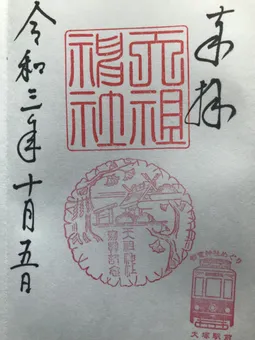 奉拝
天祖神社
令和三年十月五日
大塚駅前